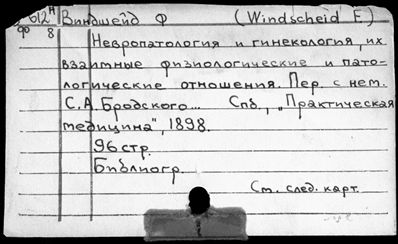 612н Виндшейд Ф (Windscheid F.)
ф 8
Невропатология и гинекология, их
взаимные физиологические и пато-
логические отношения. Пер. с нем.
С.А. Бродского... Спб., „Практическая
медицина", 1898.
96 стр.
Библиогр.
См. след. карт.